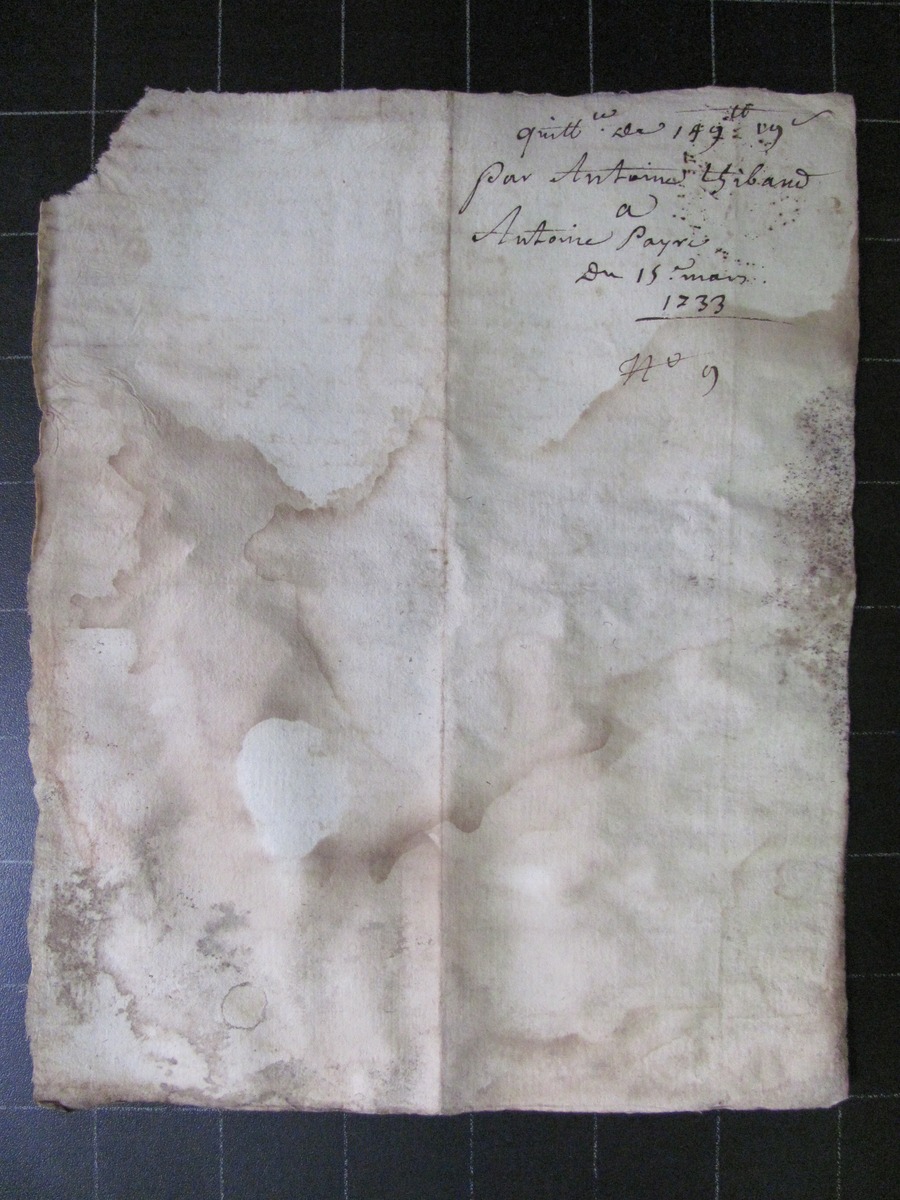 quitt.ce de 149tt 19s
par Antoine thibaud
a
Antoine Payre
du 15.e mars
1733
No 9